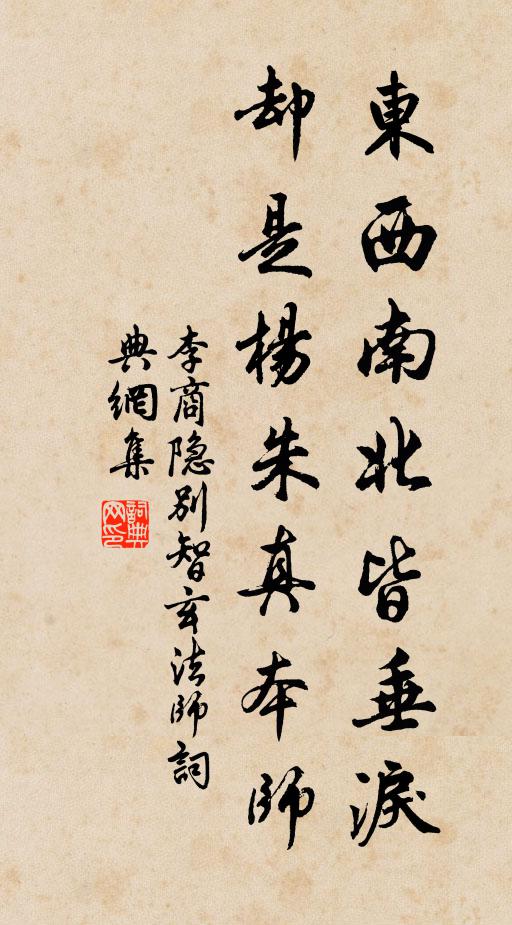 東西南北皆垂淚
却是楊朱真本師
李商隐別智玄法師詞
典網集
詞典
网印